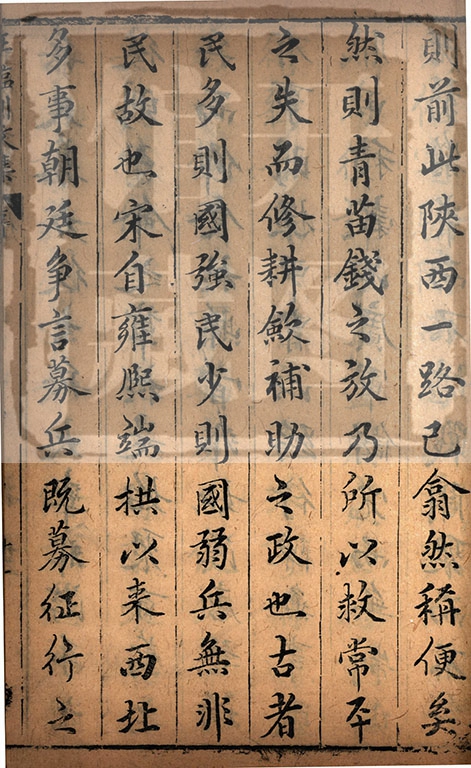 則前此陝西一路已翕然稱便矣
然則青苗錢之放乃所以救常平
之失而修耕歛補助之政也古者
民多則國強民少則國弱兵無非
民故也宋自雍熙端拱以来西北
多事朝廷争言募兵既募征行之